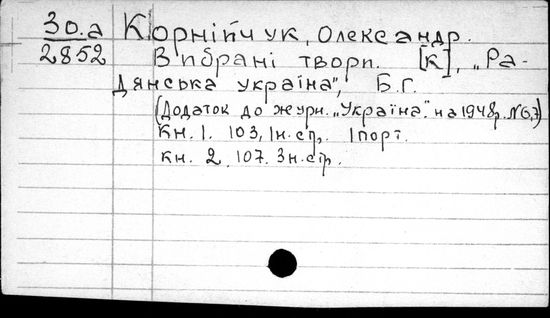 30.а Корнійчук, Олександр.
2852 Вибрані твори. [К], „Ра-
дянська україна", Б.г.
(Додаток до журн. „Україна". на 1948р. №6,7)
Кн. 1. 103, 1н.ст., 1порт.
кн. 2. 107. 3н.стр.